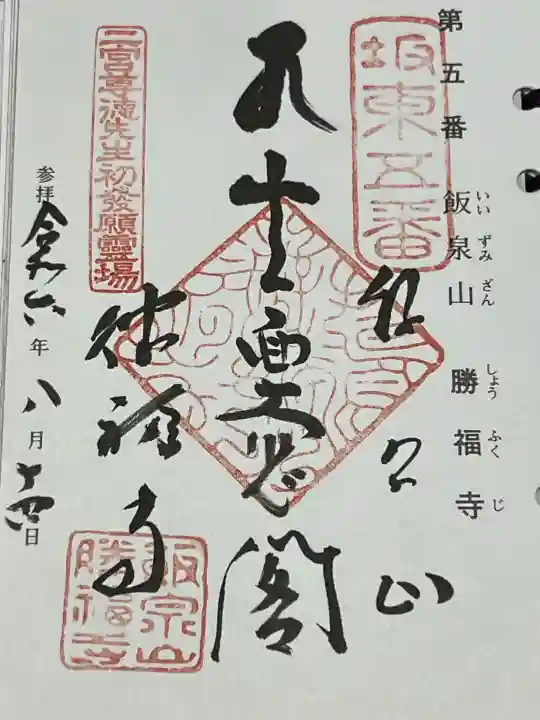 第五番 飯泉山 勝福寺
いいずみざん しょうふくじ
坂東五番
飯泉山
十一面
閣
勝福寺
二宮尊徳先生初發願靈場
飯泉山
勝福寺
参拝 令和六年 八月 十四日